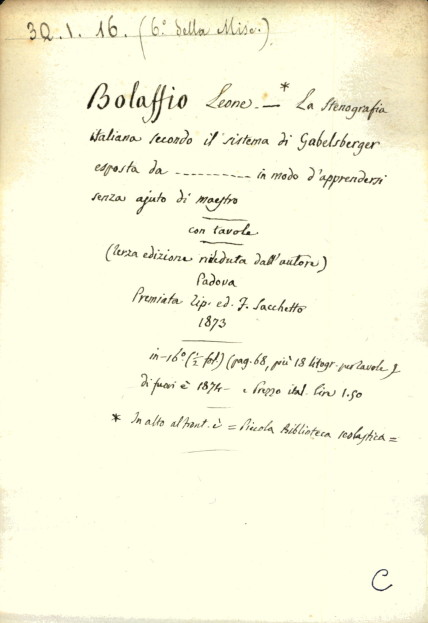 3Q.1.16. (6º della Misc.)
Bolaffio Leone. — * La Stenografia
italiana secondo il sistema di Gabelsberger
esposta da ---------- in modo d'apprendersi
senza ajuto di maestro
con tavole
(terza edizione riveduta dall'autore)
Padova
Premiata Tip. ed. F. Sacchetto
1873
in-16º (½ fol.) (pag. 68, più 18 litogr. per tavole)
di fuori è 1874 - e Prezzo ital. Lire 1.50
* In alto al front. è = Piccola Biblioteca scolastica =
C